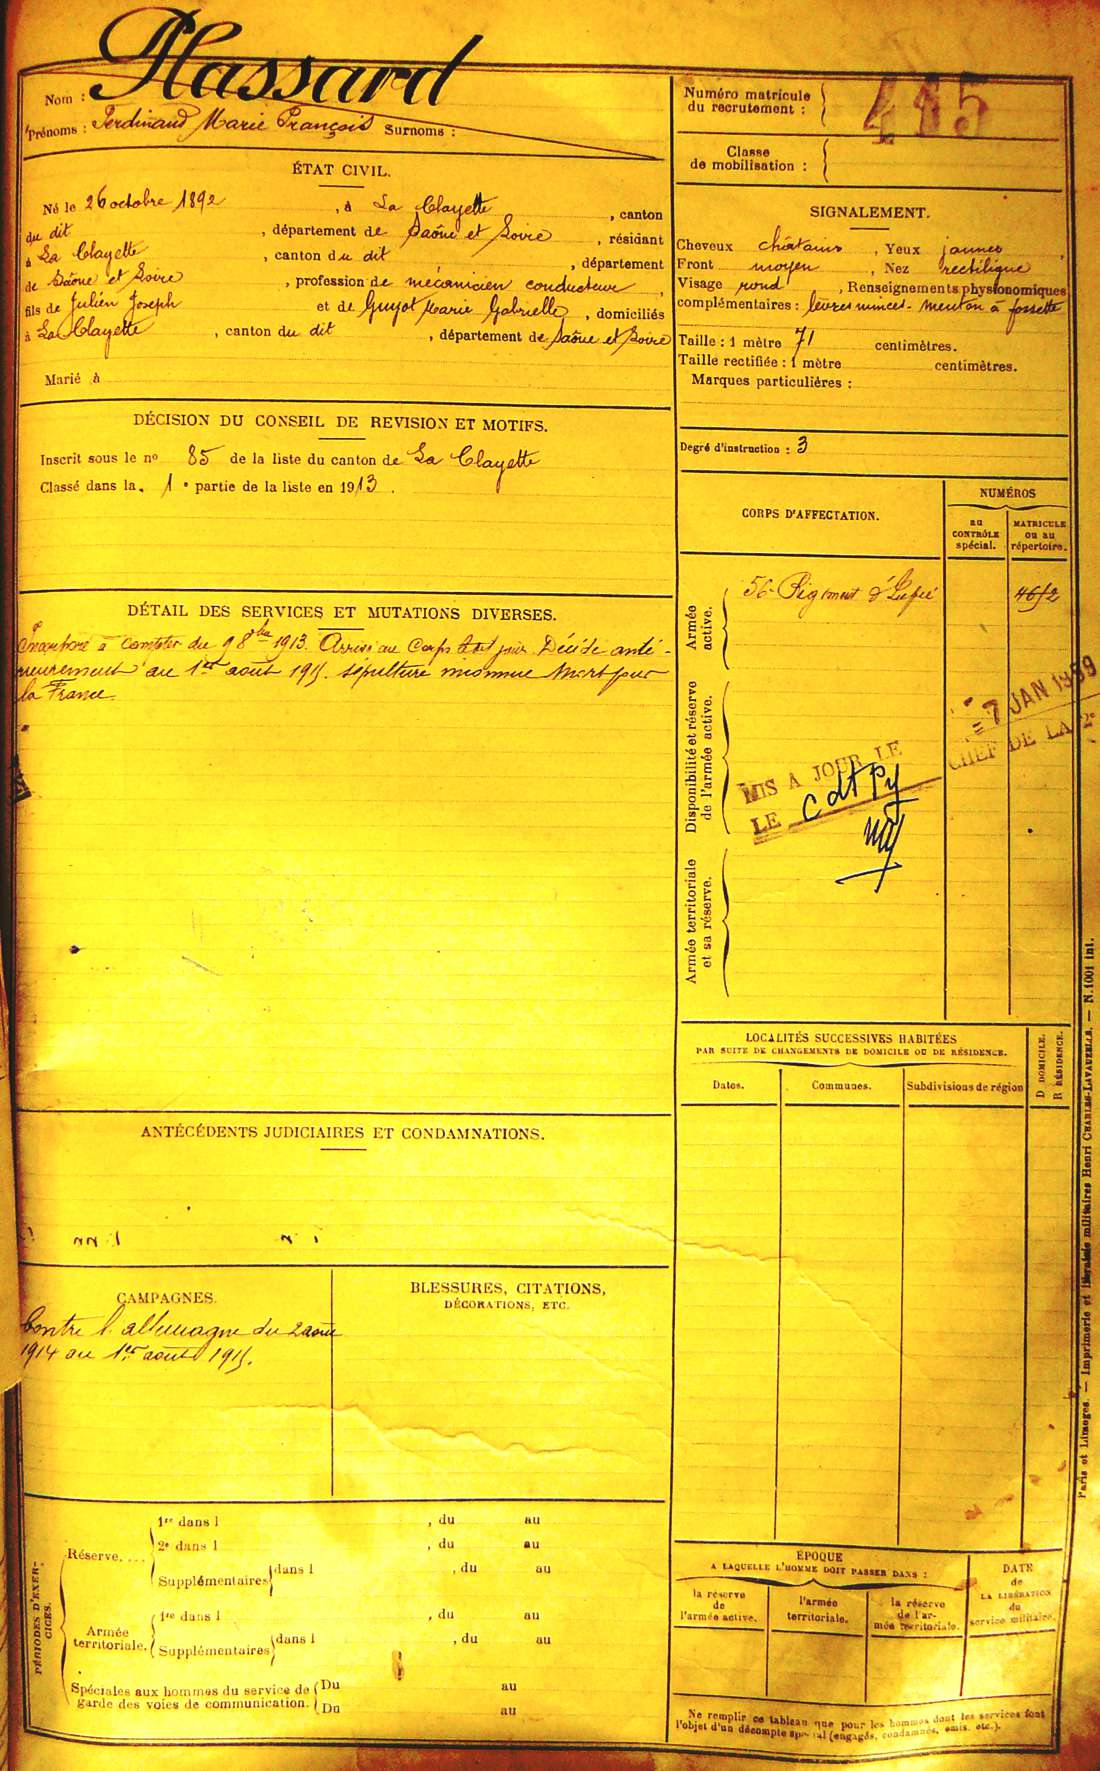 Nom : Plassard
Prénoms : Ferdinand Marie François Surnoms :
ÉTAT CIVIL.
Né le 26 octobre 1892, à La Clayette, canton
du dit, département de Saône et Loire, résidant
à La Clayette, canton du dit, département
de Saône et Loire, profession de mécanicien conducteur,
fils de Julien Joseph et de Guyot Marie Gabrielle, domiciliés
à La Clayette, canton du dit, département de Saône et Loire
Marié à
DÉCISION DU CONSEIL DE REVISION ET MOTIFS.
Inscrit sous le no 85 de la liste du canton de La Clayette
Classé dans la 1e partie de la liste en 1913.
DÉTAIL DES SERVICES ET MUTATIONS DIVERSES.
Incorporé à compter du 9 8bre 1913. Arrivé au Corps le dit jour. Décédé anté-
rieurement au 1er août 1915. sépulture inconnue Mort pour
la France.
ANTÉCÉDENTS JUDICIAIRES ET CONDAMNATIONS.
CAMPAGNES.
Contre l'allemagne du 2 août
1914 au 1er août 1915.
BLESSURES, CITATIONS,
DÉCORATIONS, ETC.
PÉRIODES D'EXER-
CICES.
Réserve....
1re dans l , du au
2e dans l , du au
Supplémentaires dans l , du au
Armée
territoriale.
1re dans l , du au
Supplémentaires dans l , du au
Spéciales aux hommes du service de
garde des voies de communication.
Du au
Du au
Numéro matricule
du recrutement : 415
Classe
de mobilisation :
SIGNALEMENT.
Cheveux châtains, Yeux jaunes,
Front moyen, Nez rectiligne
Visage rond, Renseignements physionomiques
complémentaires : lèvres minces - menton à fossette
Taille : 1 mètre 71 centimètres.
Taille rectifiée : 1 mètre centimètres.
Marques particulières :
Degré d'instruction : 3
CORPS D'AFFECTATION.
NUMÉROS
au
CONTRÔLE
spécial.
MATRICULE
ou au
répertoire.
Armée
active.
56e Régiment d'Infrie
Disponibilité et réserve
de l'armée active.
MIS A JOUR LE
= 7 JAN 1959
LE
CHEF DE LA 2e
Cdt Py
Armée territoriale
et sa réserve.
LOCALITÉS SUCCESSIVES HABITÉES
PAR SUITE DE CHANGEMENTS DE DOMICILE OU DE RÉSIDENCE.
Dates.
Communes.
Subdivisions de région
D DOMICILE.
R RÉSIDENCE.
ÉPOQUE
A LAQUELLE L'HOMME DOIT PASSER DANS :
la réserve
de
l'armée active.
l'armée
territoriale.
la réserve
de l'ar-
mée territoriale.
DATE
de
LA LIBÉRATION
du
service militaire.
Ne remplir ce tableau que pour les hommes dont les services font
l'objet d'un décompte spécial (engagés, condamnés, omis, etc.).
Paris et Limoges. — Imprimerie et librairie militaires Henri CHARLES-LAVAUZELLE. — N. 1001 int.